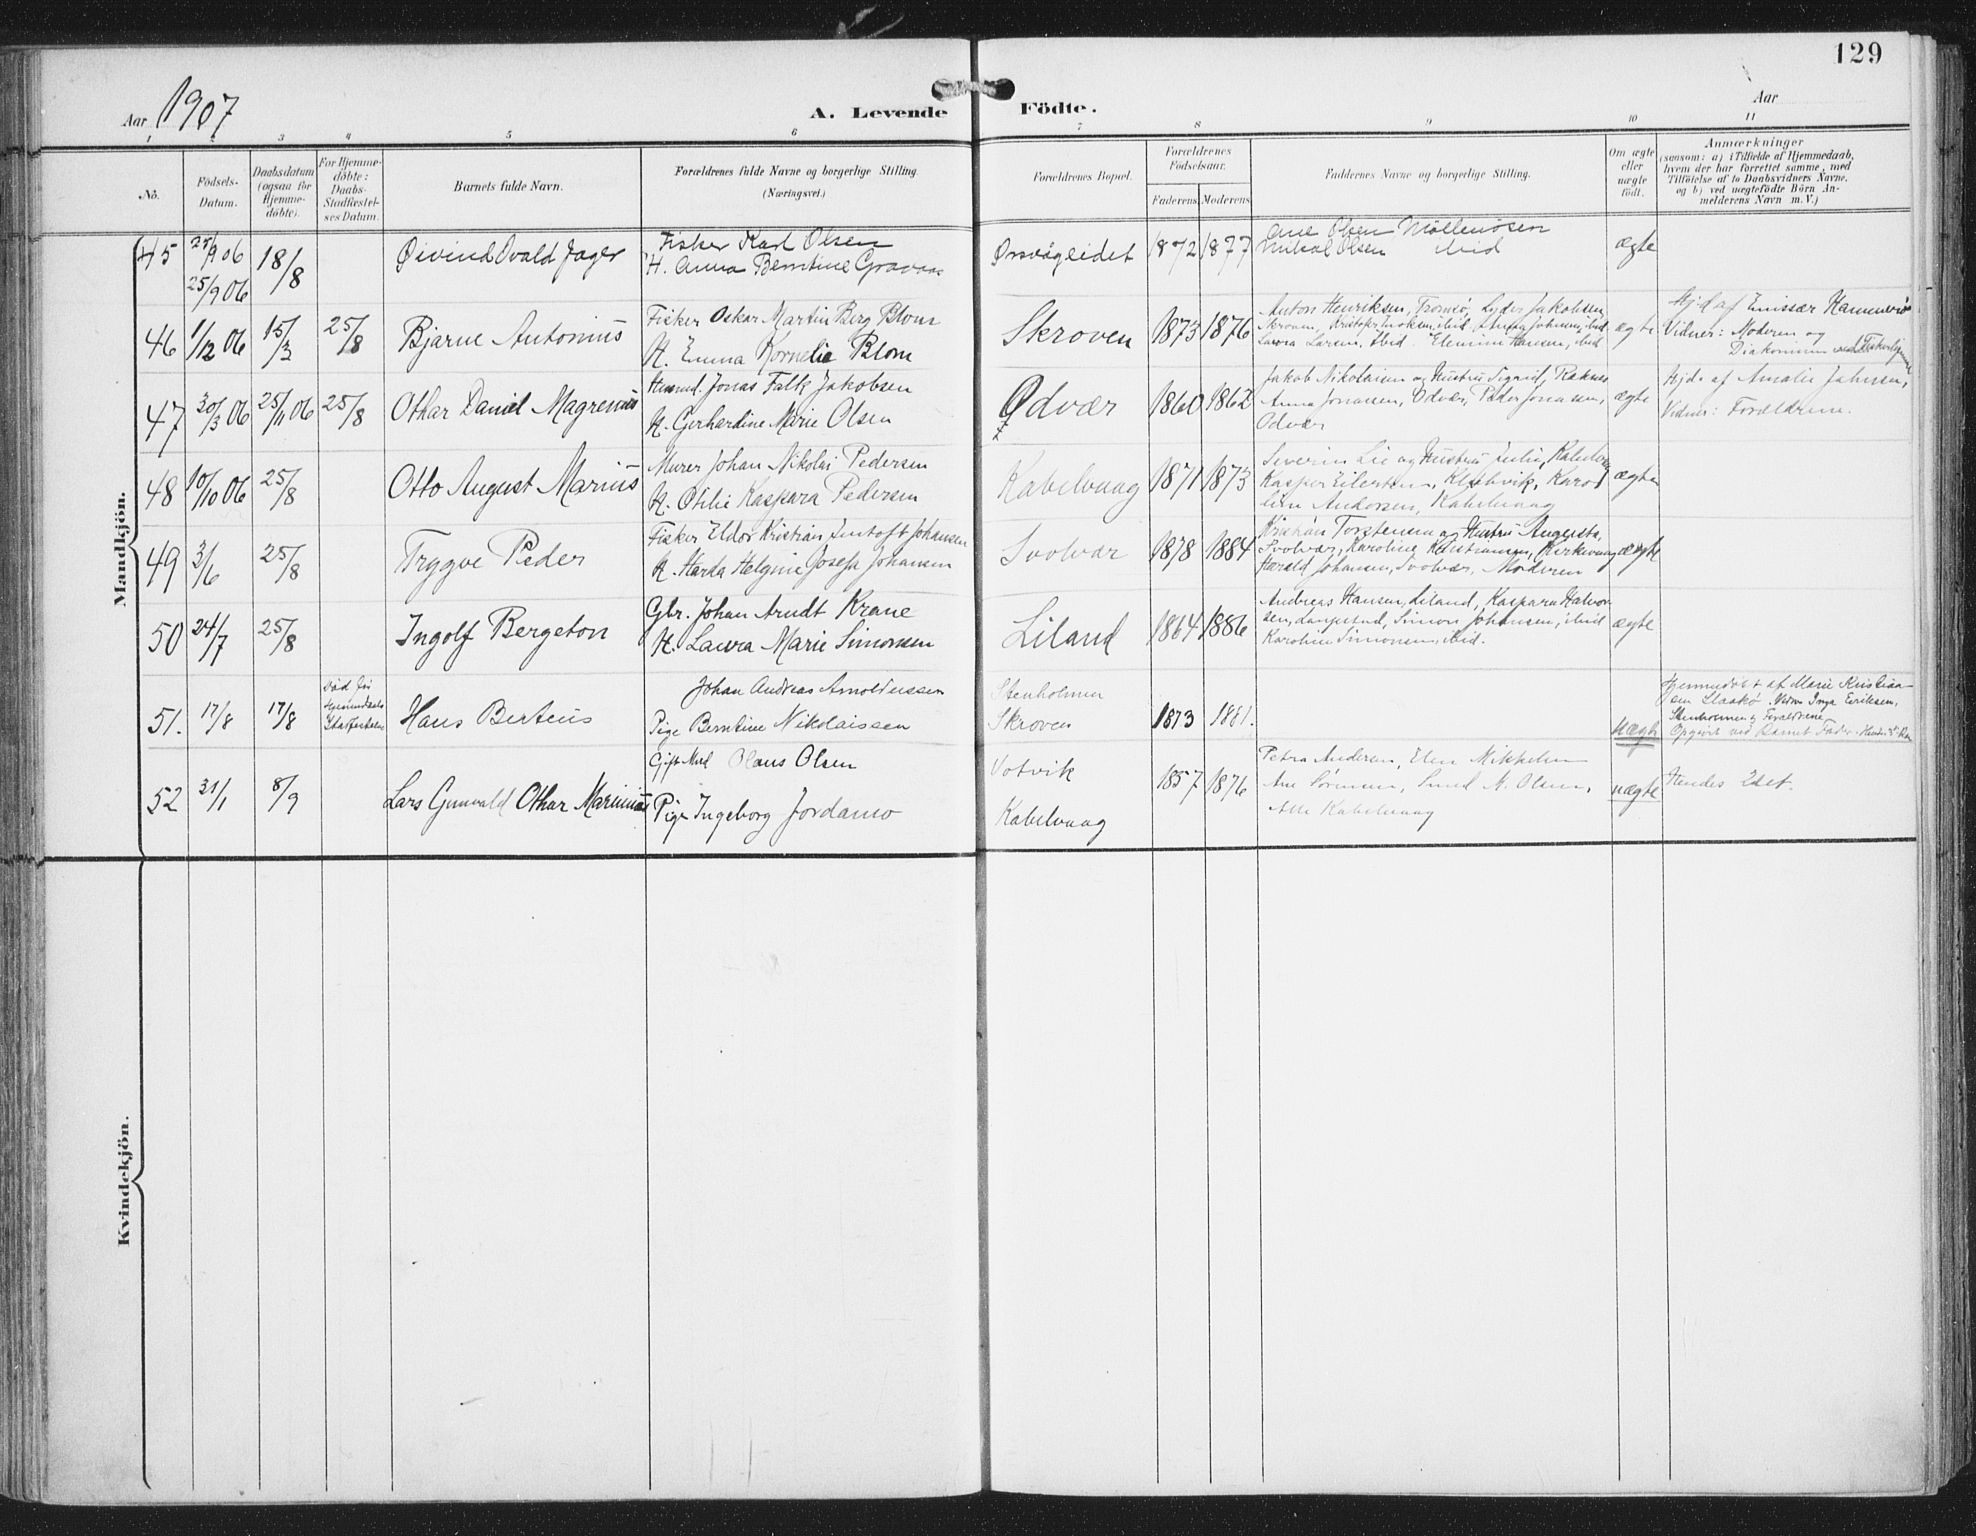 129
Aar 1907
A. Levende Födte.
Aar
1 2 3 4 5 6 7 8 9 10 11
No.
Födsels-Datum.
Daabsdatum (ogsaa för Hjemme-döbte).
For Hjemme-döbte: Daabs-Stadfæstel-ses Datum.
Barnets fulde Navn.
Forældrenes fulde Navne og borgerlige Stilling. (Næringsvei.)
Forældrenes Bopæl.
Forældrenes Födselsaar.
Faderens Moderens
Faddernes Navne og borgerlige Stilling.
Om ægte eller uægte födt.
Anmærkninger
(saasom: a) i Tilfælde af Hjemmedaab,
hvem der har forrettet samme, med
Tilföielse af to Daabsvidners Navne.
og b) ved uægtefödte Börn An-
melderens Navn m. V.)
Mandkjön.
45 25/9 06 18/8 Øivind Ovald Jager
Fisker Karl Olsen
H. Anna Berntine Gravaas
Orsvågeidet 1872 1877
Ane Olsen Möllenösen
Mikal Olsen ibid
ægte
46 1/12 06 15/3 25/8 Bjarne Antonius
Fisker Oskar Martin Berg Blom
H. Emma Kornelie Blom
Skroven 1873 1876
Anton Henriksen, Tromsö, Lyder Jakobsen,
Skroven, Kristofer ibid, Anna Johnsen, ibid
Laura Larsen, Ibid. Hansen, ibid
ægte
Hjd af Emisær Hammerö
Vidner: Moderen og
Diakonisse
47 30/3 06 25/11 06 25/8 Othar Daniel Magrenus
Jonas Falk Jakobsen
H. Gerhardine Marie Olsen
Ødvær 1860 1862
Jakob Nikolaisen og Hustru Sigrid, Raknes
Anna Jonassen, Odvær, Peder Jonassen,
Odvær
ægte
Hjd. af Amalie Jahnsen,
Vidner: Forældrene.
48 10/10 06 25/8 Otto August Marius
Murer Johan Nikolai Pedersen
H. Otilie Kaspara Pedersen
Kabelvaag 1871 1873
Severin Lie og Hustru Julie, Kabelvaag
Kasper Eilertsen, Karo-
line Andersen, Kabelvaag
ægte
49 3/6 25/8 Trygve Peder
Fisker Eldor Kristian Johansen
H. Harda Helgine Josefa Johansen
Svolvær 1878 1884
Kristian Torstensen og Hustru Augusta,
Svolvær, Karoline Kristiansen, Kirkevaag
Harald Johansen, Svolvær, Moderen
ægte
50 24/7 25/8 Ingolf Bergeton
Gbr. Johan Arndt Krane
H. Laura Marie Simonsen
Liland 1864 1886
Andreas Hansen, Liland, Kaspara Halvor
sen, Simon Johansen, ibid
Karoline Simonsen, ibid.
ægte
51. 17/8 17/8 Död før
Hans Berteus
Johan Andreas Arnoldussen
Pige Berntine Nikolaissen
Stenholmen
Skroven 1873 1881.
uægte
Hjemmedöbt af Marie Kristian-
sen Vidner Inga Eriksen,
Stenholmen og Forældrene
52 31/1 8/9 Lars Gunvald Othar Marinius
Gift Md Olaus Olsen
Pige Ingeborg Jordamo
Votvik
Kabelvaag 1857 1876
Petra Andersen, Elen Mikkelsen
Ane Sörensen, M. Olsen,
Alle Kabelvaag
uægte
Hendes 2det.
Kvindekjön.